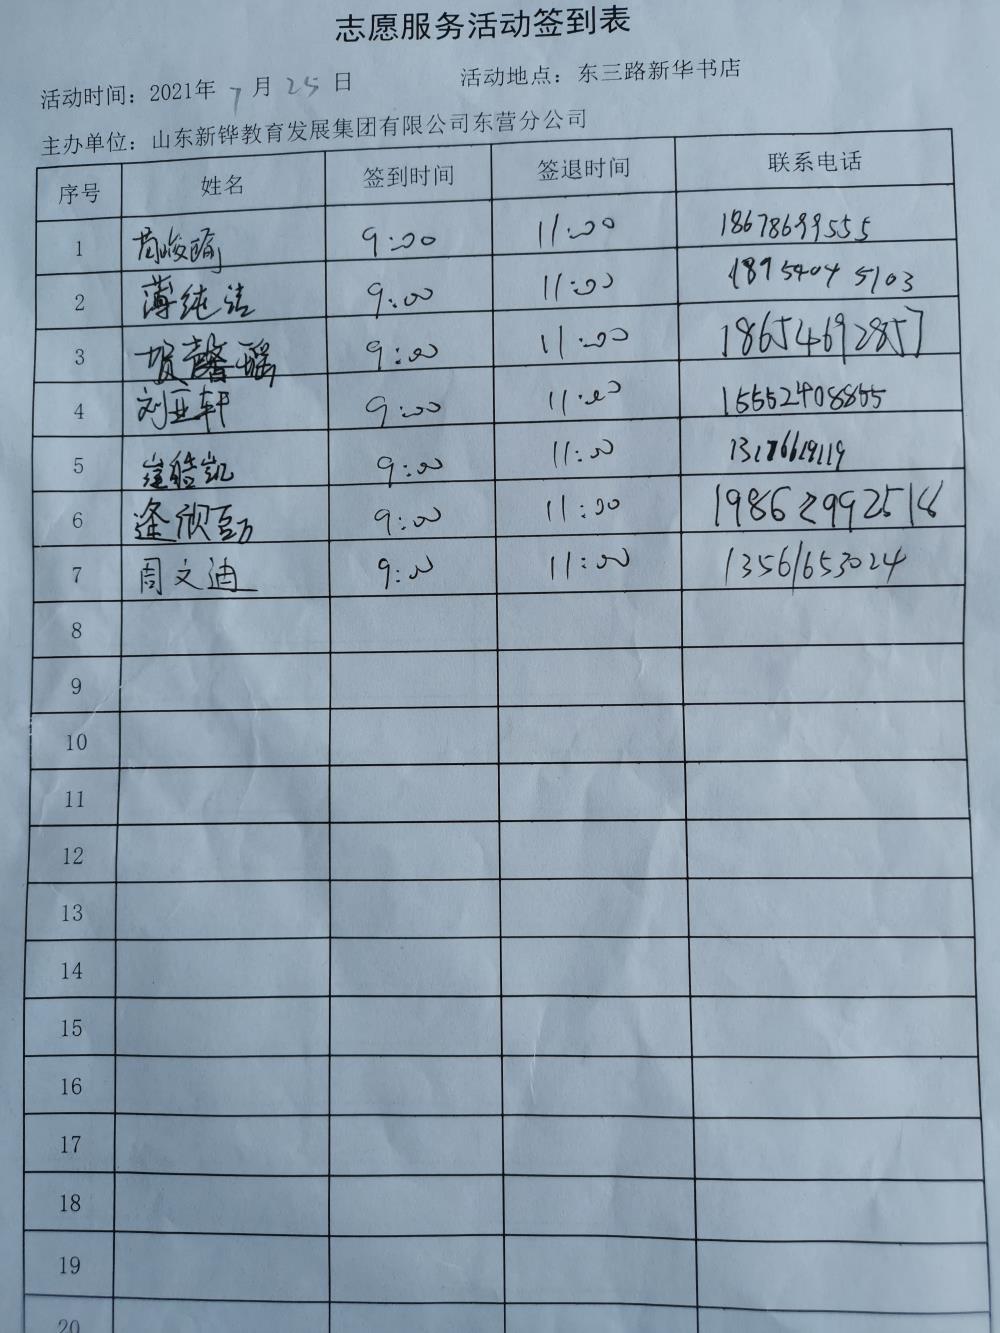 志愿服务活动签到表
活动时间：2021年 7 月 25 日 活动地点：东三路新华书店
主办单位：山东新铧教育发展集团有限公司东营分公司
序号 姓名 签到时间 签退时间 联系电话
1 周峻瑜 9:00 11:00 18678699555
2 薄纯洁 9:00 11:00 18954045103
3 馨瑶 9:00 11:00 18654692857
4 刘亚轩 9:00 11:00 15552408855
5 崔皓凯 9:00 11:00
6 逄欣 9:00 11:00
7 周文迪 9:00 11:00 13561653024
8
9
10
11
12
13
14
15
16
17
18
19
20